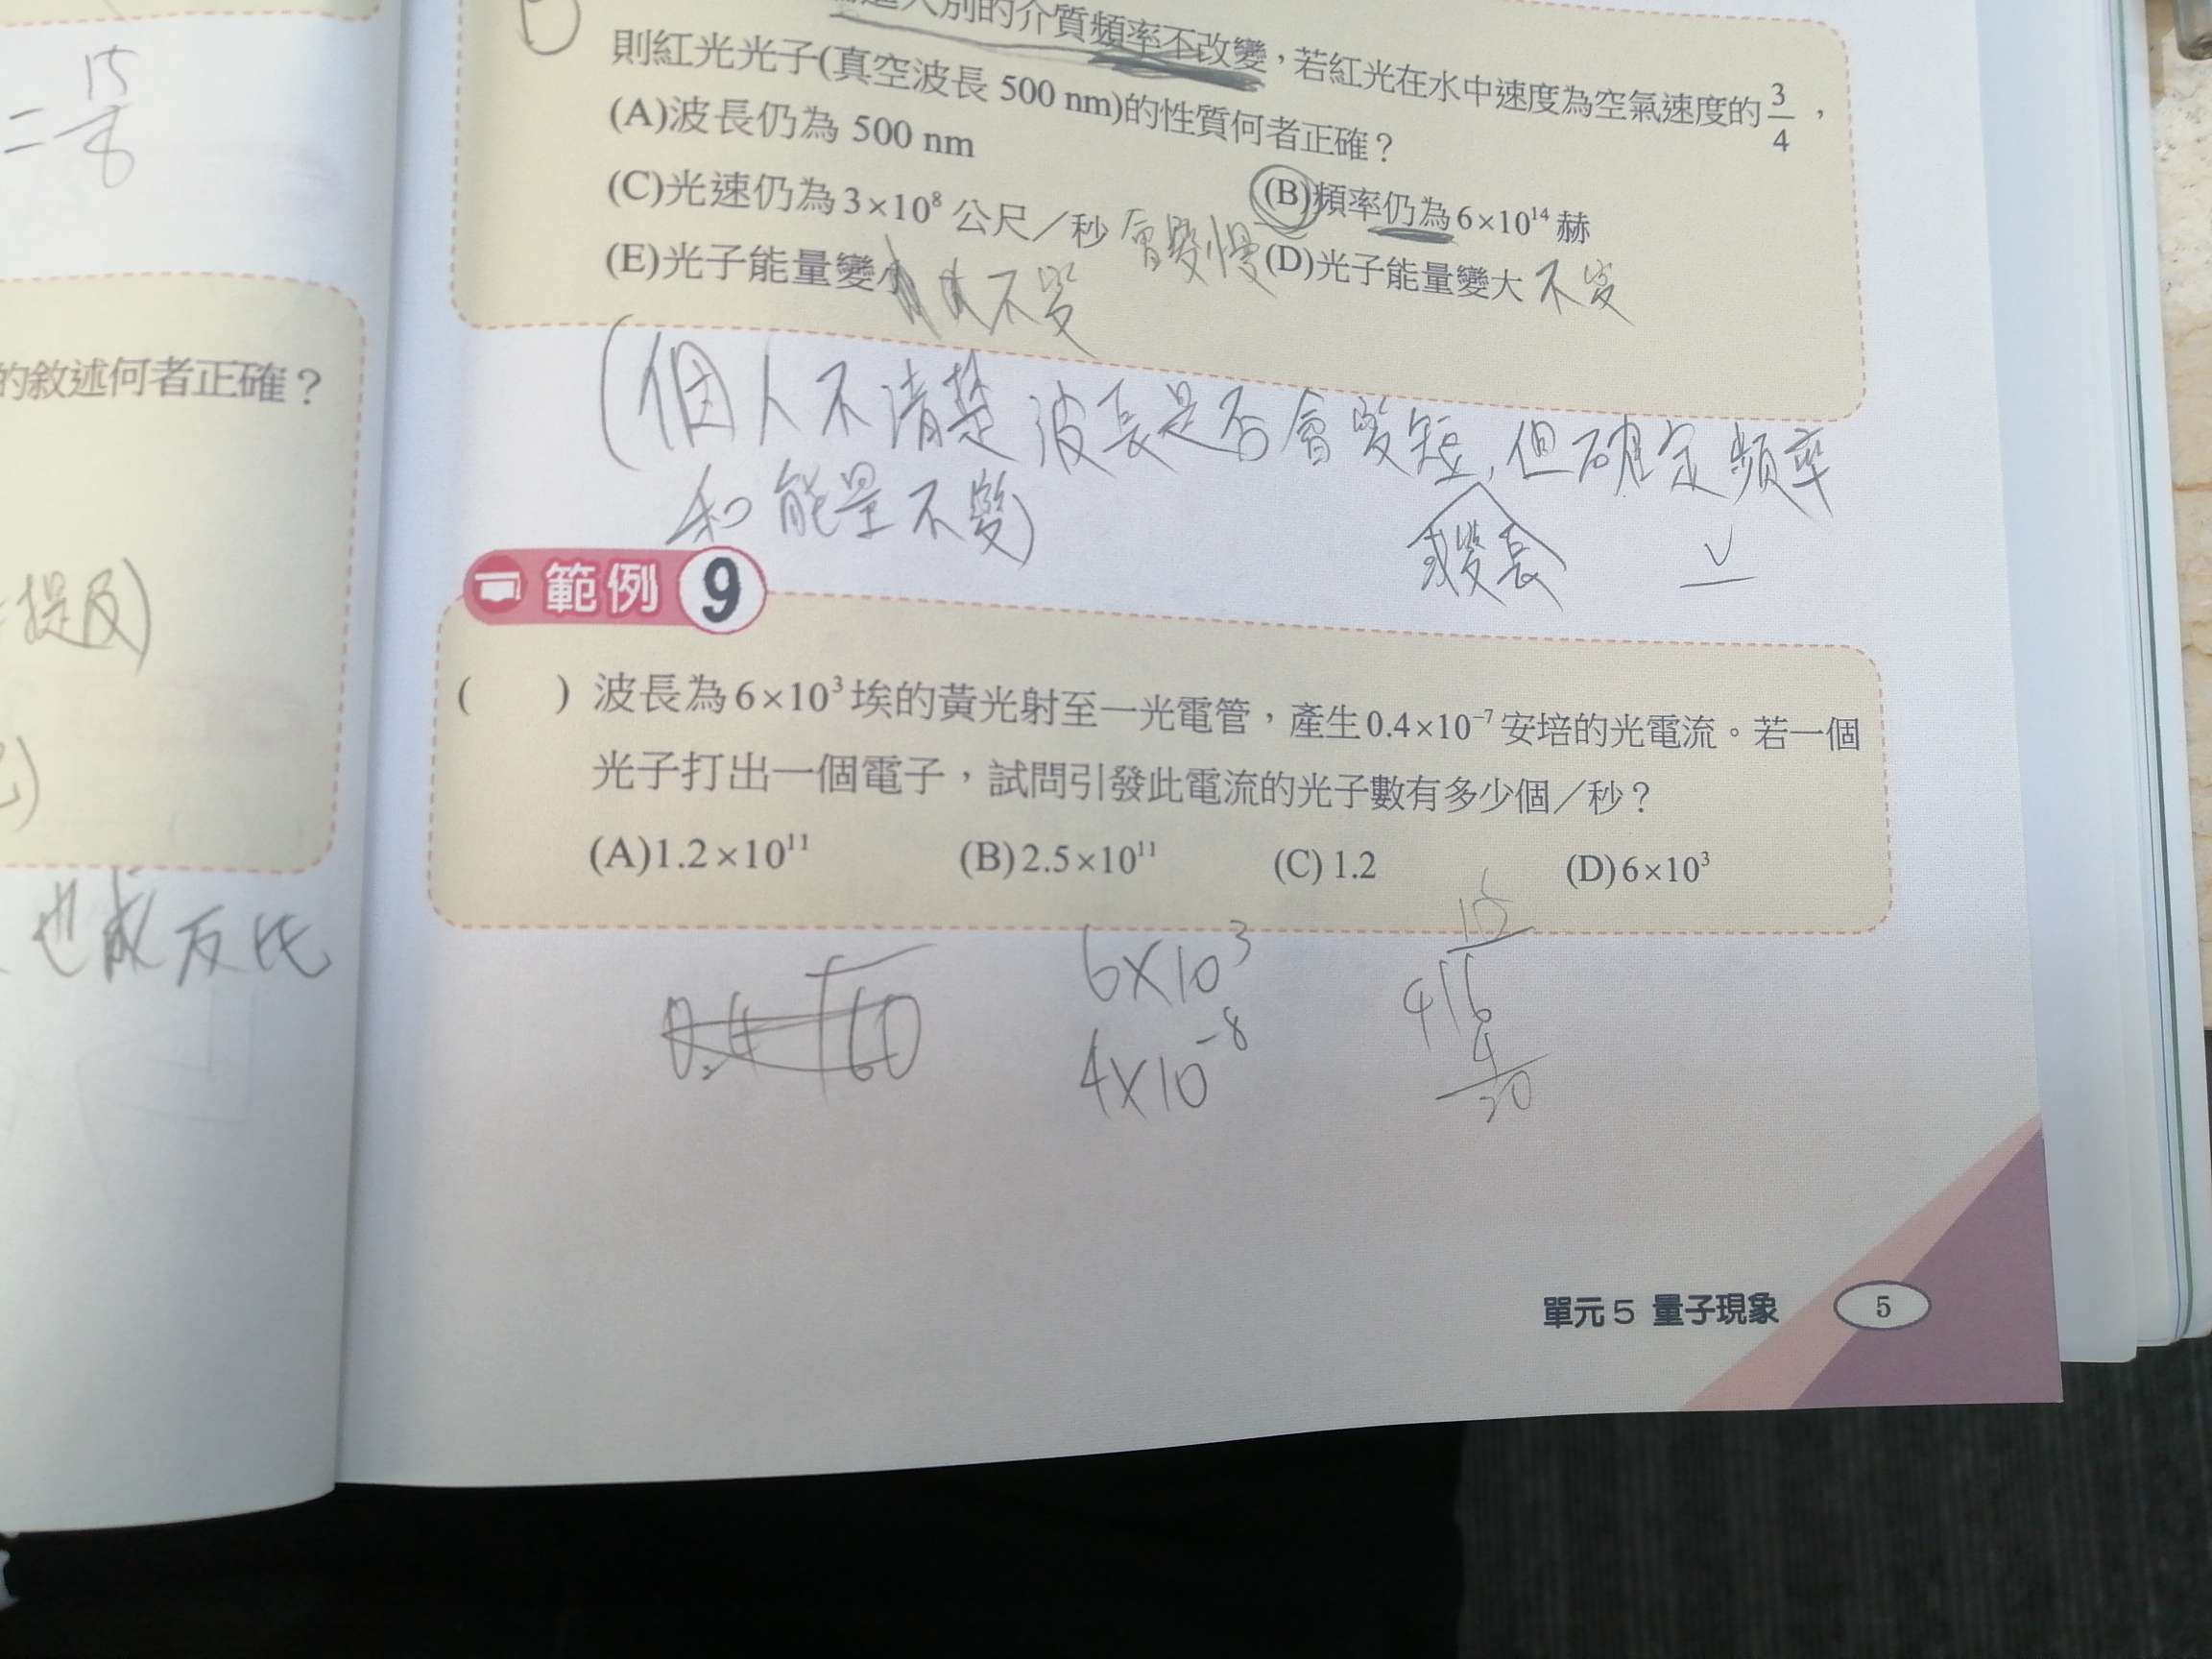 進入別的介質頻率不改變，若紅光在水中速度為空氣速度的 3/4 ，
則紅光光子(真空波長 500 nm)的性質何者正確？
(A)波長仍為 500 nm
(B)頻率仍為 6×10¹⁴ 赫
(C)光速仍為 3×10⁸ 公尺／秒 會變慢
(D)光子能量變大 不變
(E)光子能量變小 不變
(個人不清楚波長是否會變短，但確定頻率
或變長
和能量不變)
範例 9
( ) 波長為 6×10³ 埃的黃光射至一光電管，產生 0.4×10⁻⁷ 安培的光電流。若一個
光子打出一個電子，試問引發此電流的光子數有多少個／秒？
(A)1.2×10¹¹ (B)2.5×10¹¹ (C)1.2 (D)6×10³
6×10³
4×10⁻⁸
15
4 6
4
20
單元 5 量子現象 5
= 15
的敘述何者正確？
提及)
也成反比